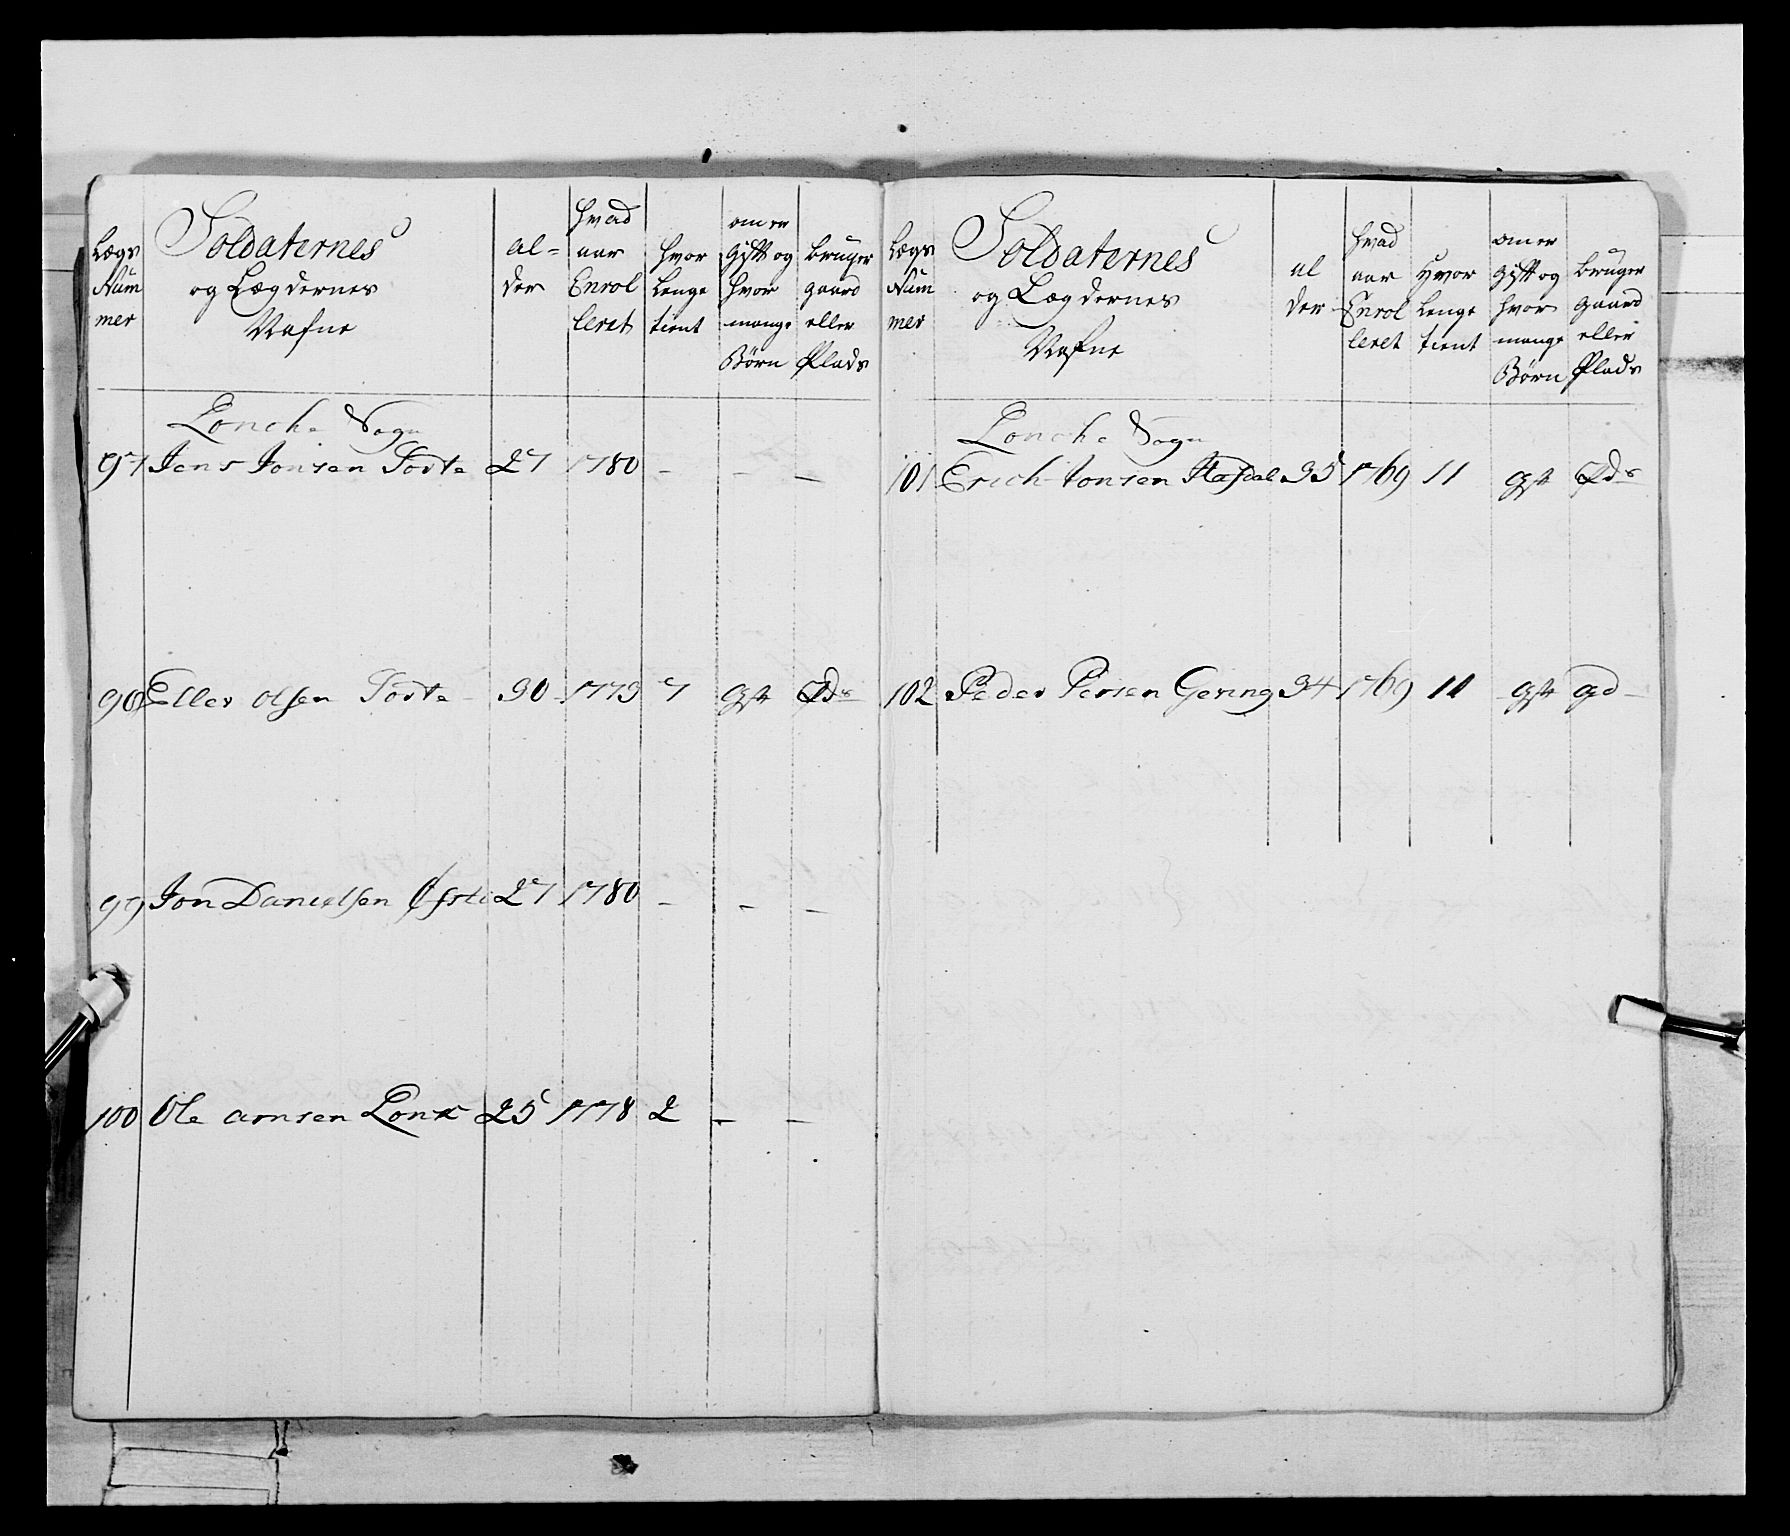 Lægs
Num
mer
Soldaternes
og Lægdernes
Nafne
al=
der
hvad
aar
Enrol
leret
hvor
Lenge
tient
om er
gift og
hvor
mange
Børn
bruger
gaard
eller
Plads
Lonche Sogn
97 Jens Jonsen Torte 27 1780 - - -
98 Eller Olsen Torte - 30 - 1773 7 gst Pds
99 Jon Danielsen Øfsti 27 1780 - - -
100 Ole arnsen Lonx 25 1778 2 - -
Lægs
Num
mer
Soldaternes
og Lægdernes
Nafne
al
der
hvad
aar
Enrol
leret
Hvor
Lenge
tient
om er
gift og
hvor
mange
Børn
bruger
gaard
eller
Plads
Lonche Sogn
101 Erich Jonsen Hafdal 35 1769 11 gst Pds
102 Peder Persen Gering 34 1769 11 - gst gd -